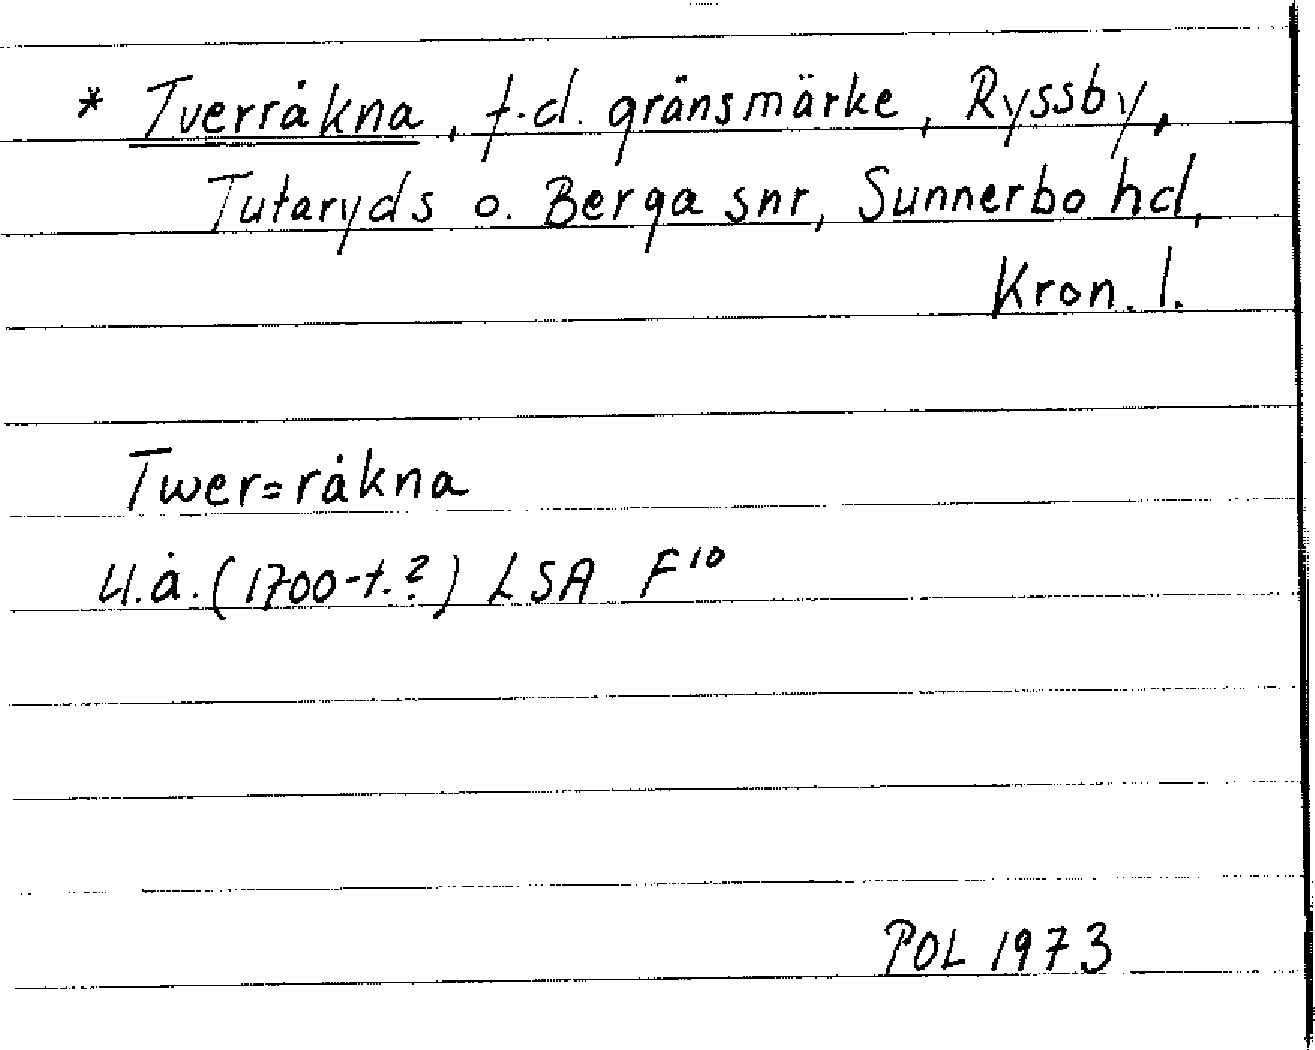 * Tverråkna, f.d. gränsmärke, Ryssby,
Tutaryds o. Berga snr, Sunnerbo hd,
Kron. l.
Twer=råkna
U.å. (1700-t.?) LSA F¹⁰
POL 1973